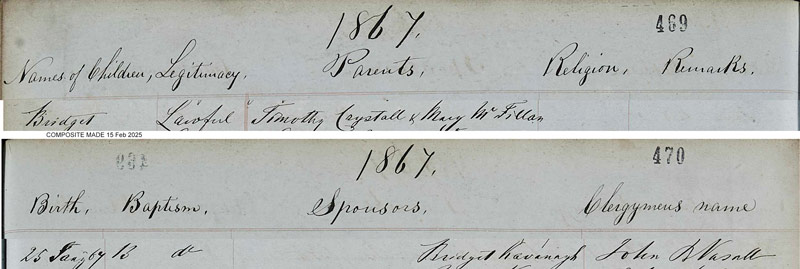 1867.
469
Names of Children, Legitimacy. Parents, Religion, Remarks.
Bridget Lawful Timothy Crystall & Mary McFillan
COMPOSITE MADE 15 Feb 2025
1867.
470
Birth, Baptism, Sponsors, Clergymens name
25 Jany 67 B do Bridget Kavanagh John B